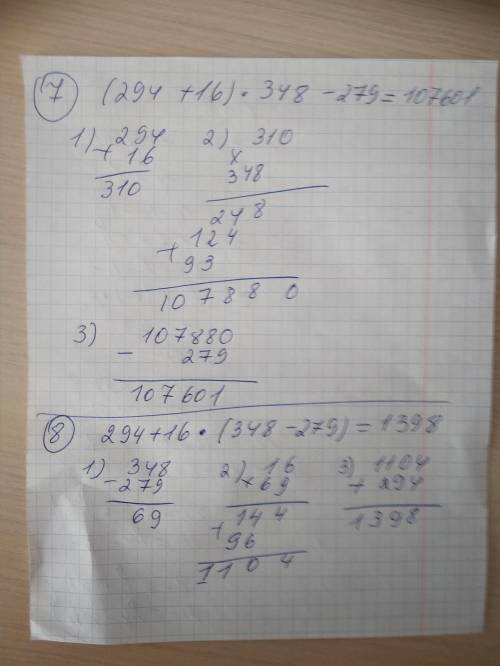 7 (294 + 16) · 348 - 279 = 107601
1) 294 2) 310
+ 16 ×
310 348
248
+ 124
93
107880
3) 107880
- 279
107601
8 294 + 16 · (348 - 279) = 1398
1) 348 2) 16 3) 1104
- 279 × 69 + 294
69 144 1398
+ 96
1104